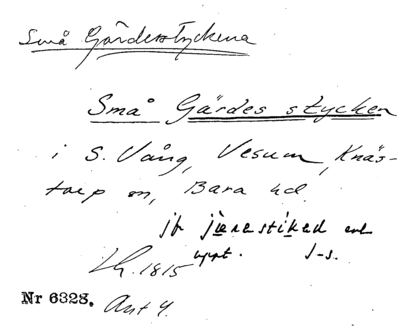 Små Gärdesstyckena
Små Gärdes stycken
i S. Vång, Vesum, Knäs-
torp sn, Bara hd.
jfr enl
uppt. J-s.
Lh. 1815
Nr 6328. Ant 4.